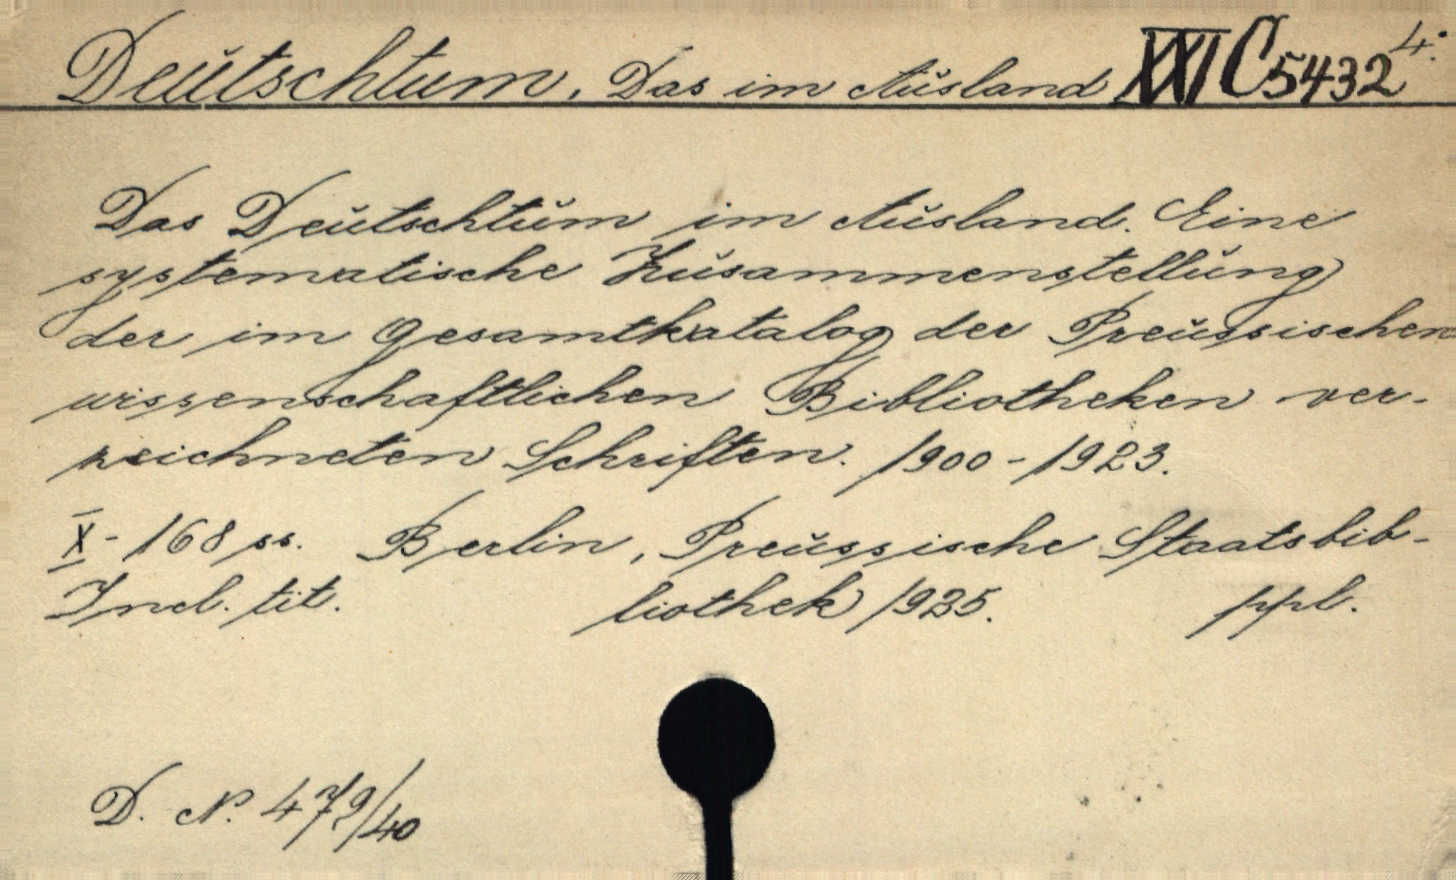 Deutschtum, Das im Ausland XXI C 5432 4.
Das Deutschtum im Ausland. Eine
systematische Zusammenstellung
der im Gesamtkatalog der Preussischen
wissenschaftlichen Bibliotheken ver-
zeichneten Schriften. 1900-1923.
X-168 ss. Berlin, Preussische Staatsbib-
Incl. tit. liothek 1925. ppl.
D. N. 479/40